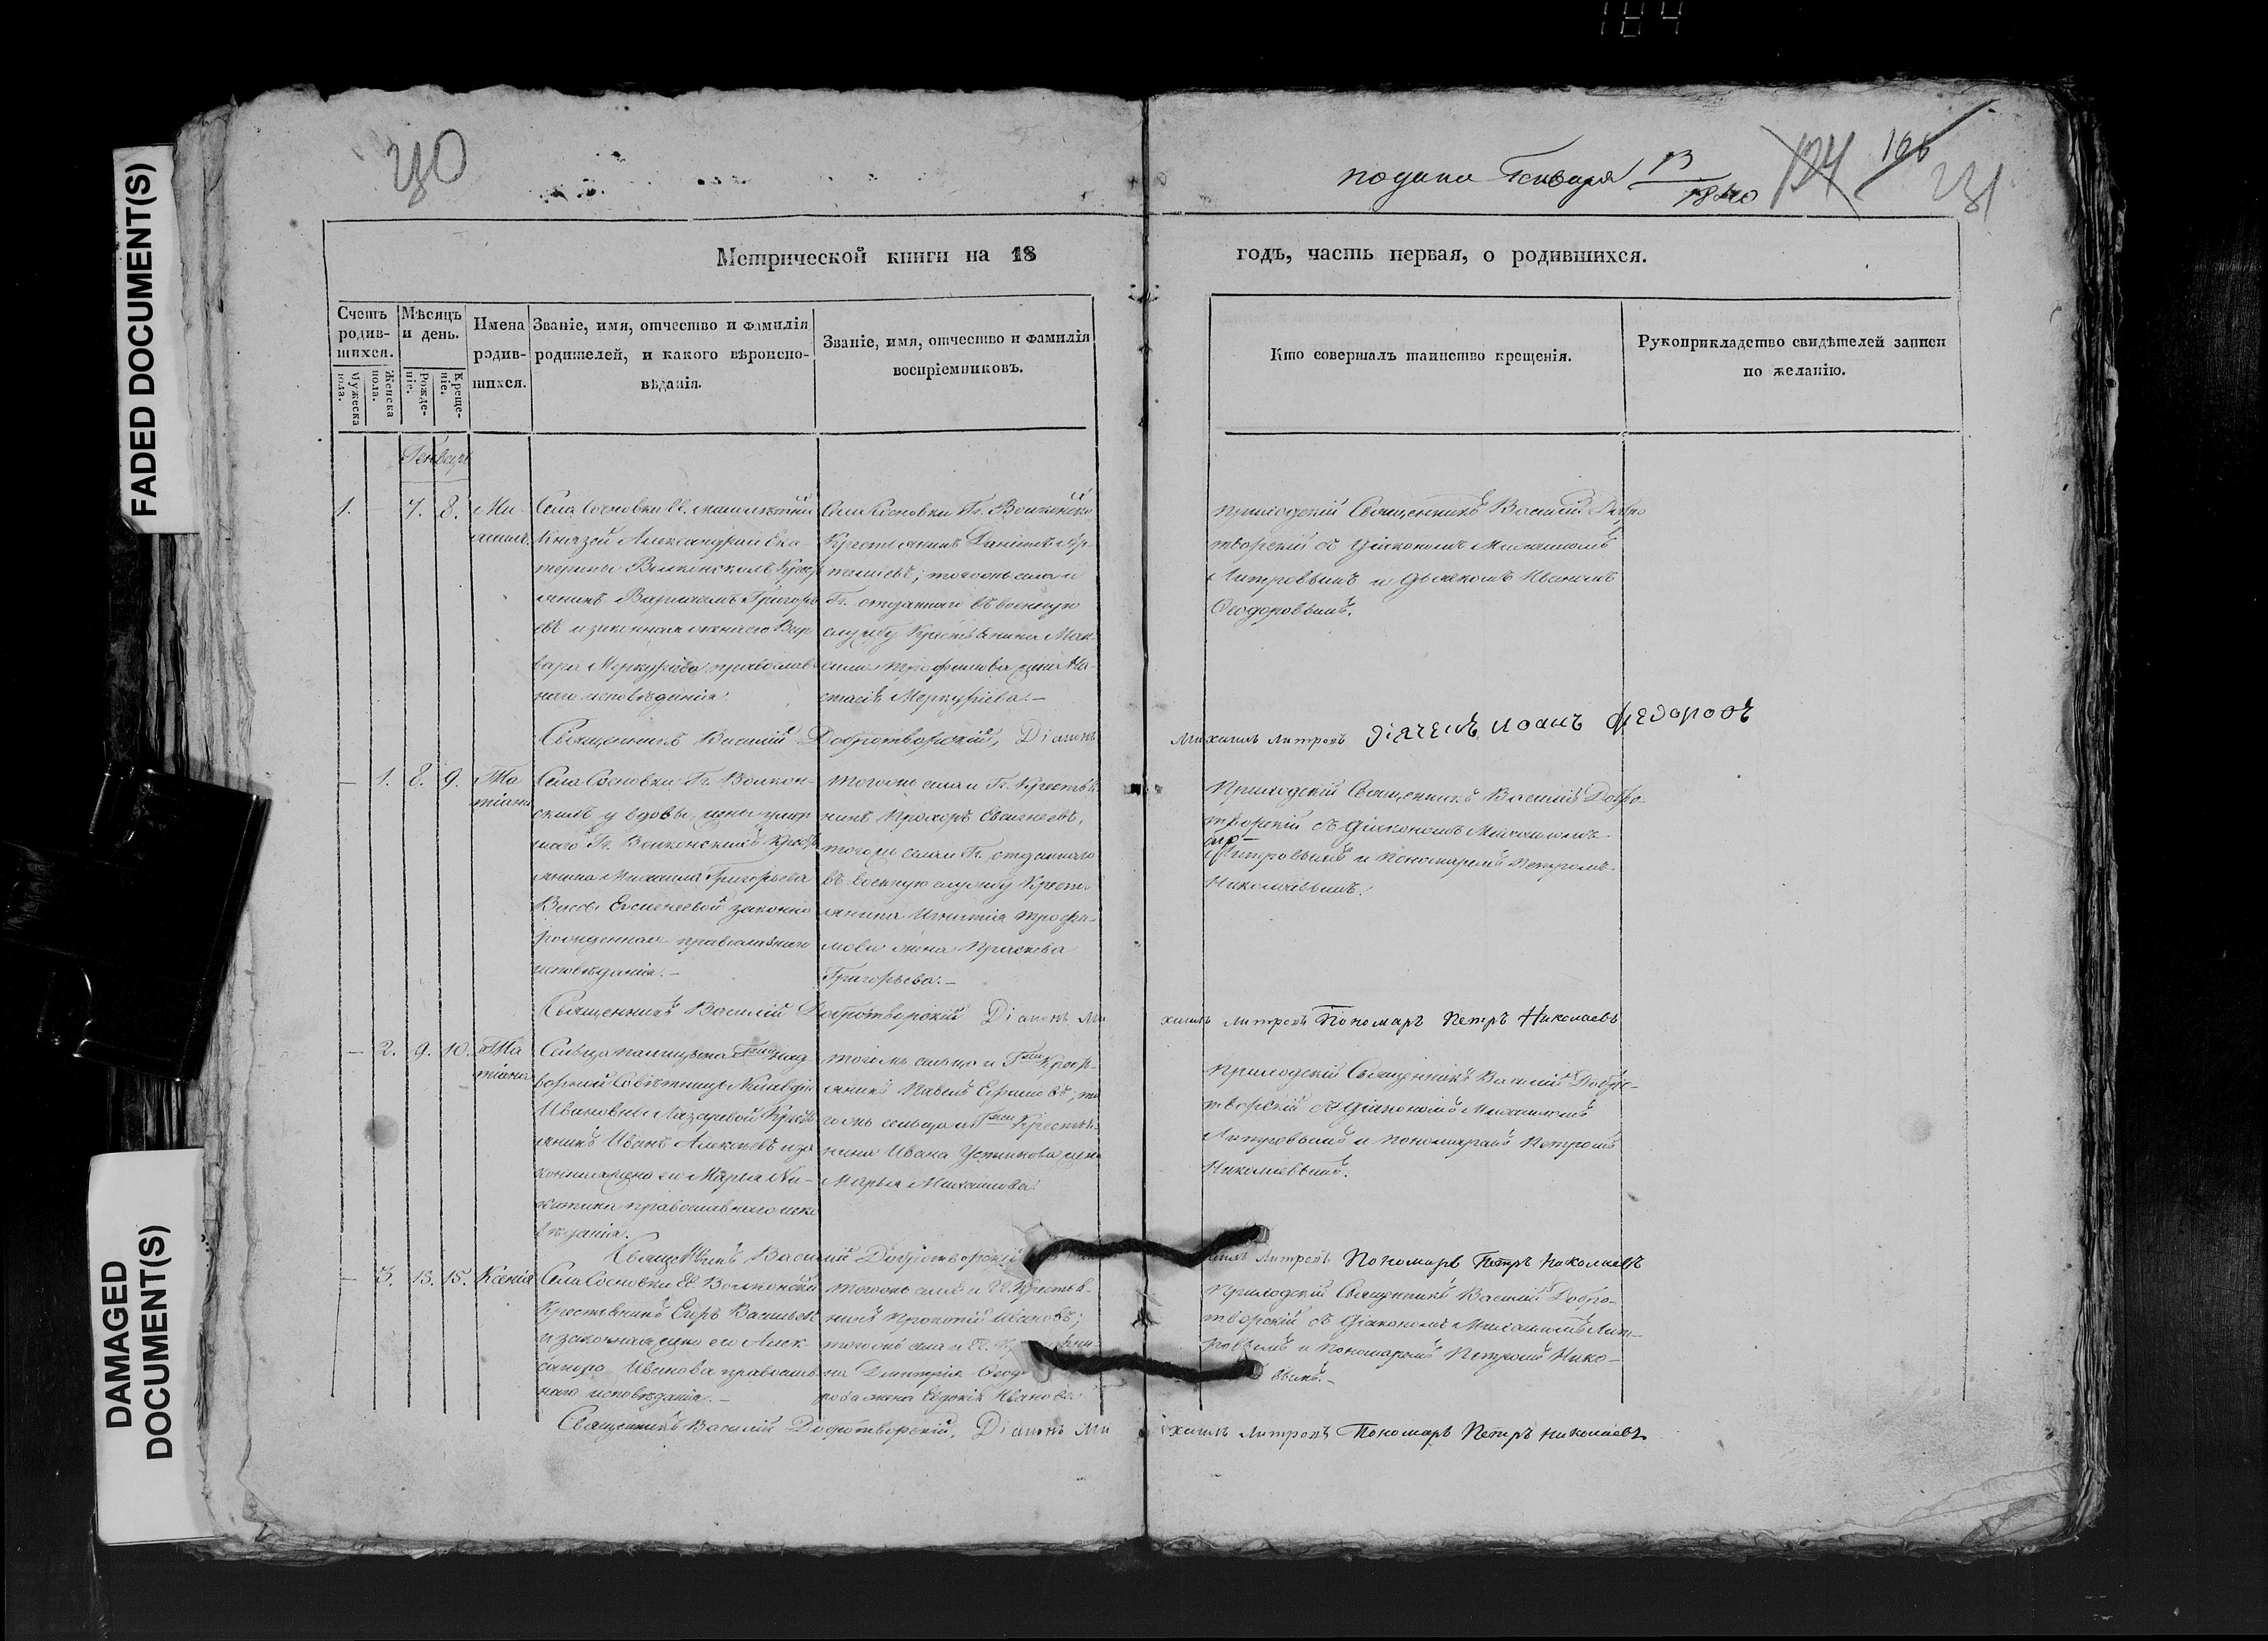 184
FADED DOCUMENT(S)
DAMAGED
DOCUMENT(S)
подана Генваря 13
1840
124 166
231
Метрической книги на 18 годъ, часть первая, о родившихся.
Счетъ родив-шихся.
Мужеска пола.
Женска пола.
Мѣсяцъ и день.
Рожде-ніе.
Креще-ніе.
Имена родив-шихся.
Званіе, имя, отчество и фамилія
родителей, и какого вѣроиспо-
вѣданія.
Званіе, имя, отчество и фамилія
воспріемниковъ.
Кто совершалъ таинство крещенія.
Рукоприкладство свидѣтелей записи
по желанію.
Генварь
1. - 7. 8.
Села Сосновки
Князей Александра и Ека-
терины Волконскихъ Крест
янинъ Григорь
евъ и законная жена его Вар
вара Меркурьева православ
наго исповѣданія.
Села Сосновки Гг. Волконскихъ
Крестьянинъ Даніилъ Ар-
темьевъ; тогожъ села и
Гг. отданнаго въ военную
службу Крестьянина Мак-
сима Трофимова жена На-
стасія Меркурьева.-
приходскій Священникъ Василій Добро
творскій съ діакономъ Михаиломъ
Митровымъ и дьячкомъ Иваномъ
Ѳеодоровымъ.
Священникъ Василій Добротворскій, Діаконъ Михаилъ Митровъ діячекъ Иоанъ Федоровъ
- 1. 8. 9. Та
тіана
Села Сосновки Гг. Волкон-
скихъ у вдовы, жены умер
шаго Гг. Волконскихъ Крест
янина Михаила Григорьева
законно
рожденная православнаго
исповѣданія.-
тогожъ села и Гг. Крестья
нинъ Прохоръ Евсигнеевъ,
тогожъ села и Гг. отданнаго
въ военную службу Крест
янина Игнатія Трофи-
мова жена Прасковья
Григорьева.-
Приходскій Священникъ Василій Добро-
творскій съ діакономъ Михаиломъ
Митровымъ и Пономаремъ Петромъ
Николаевымъ.
Священникъ Василій Добротворскій Діаконъ Ми
хаилъ Митровъ Пономарь Петръ Николаевъ
- 2. 9. 10. Та
тіана
Сельца
ворной Совѣтницы Клавдіи
Ивановны Лазаревой Крест
янинъ Иванъ Алексѣевъ и за
конная жена его Марья Ни-
китина православнаго испо
вѣданія.
тогожъ сельца и Крест-
янинъ Павелъ Ефимовъ; то
гожъ сельца и Крестья-
нина Ивана Устинова жена
Марья Михайлова.
Приходскій Священникъ Василій Добро-
творскій съ діакономъ Михаиломъ
Митровымъ и пономаремъ Петромъ
Николаевымъ.
Священникъ Василій Добротворскій
Митровъ Пономарь Петръ Николаевъ
- 3. 13. 15. Ксенія
Села Сосновки Гг. Волконскихъ
Крестьянинъ Егоръ Васильевъ
и законная жена его Алек
сандра Иванова православ
наго исповѣданія.-
тогожъ села и Гг. Крестья-
нинъ Прокопій Ивановъ;
тогожъ села и Гг.
на Дмитрія Ѳеодо
рова жена Евдокія Иванова.
Приходскій Священникъ Василій Добро-
творскій съ діакономъ Михаиломъ Мит-
ровымъ и Пономаремъ Петромъ Нико-
вымъ.-
Священникъ Василій Добротворскій, Діаконъ Ми
хаилъ Митровъ Пономарь Петръ Николаевъ.